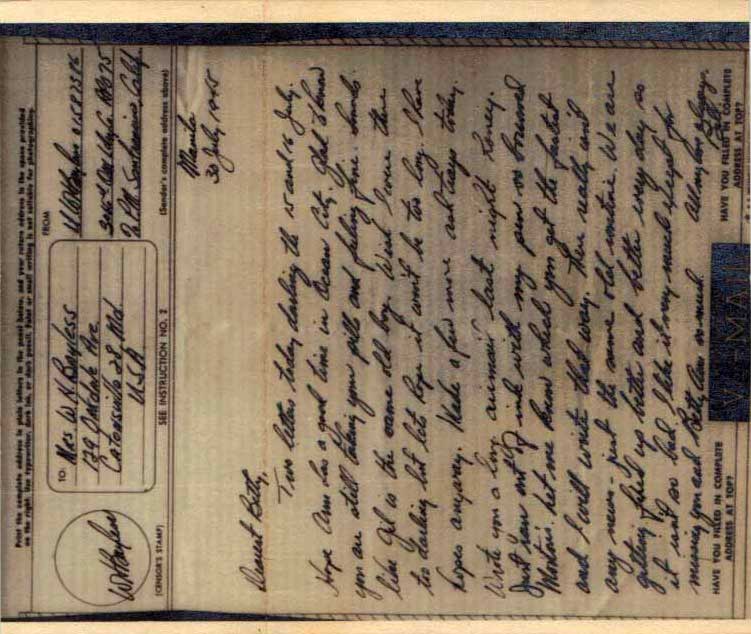 Print the complete address in plain letters in the panel below, and your return address in the space provided
on the right. Use typewriter, dark ink, or dark pencil. Faint or small writing is not suitable for photographing.
TO:
Mrs W. K. Bayless
139 Oakdale Ave
Catonsville 28 Md.
U.S.A
FROM
W K Bayless 01587386
APO 75
% P.M. San Francisco, Calif.
(CENSOR'S STAMP)
SEE INSTRUCTION NO. 2
(Sender's complete address above)
Manila
30 July 1945
Dearest Betty,
Two letters today darling the 15 and 16 July.
Hope Ann has a good time in Ocean City. Glad to know
you are still taking your pills and feeling fine. Sounds
like Gil is the same old boy. Wish I were there
too darling but lets hope it won't be too long. I have
hopes anyway. Made a few more anti today.
Wrote you a long airmail last night honey.
Just ran out of ink with my pen so borrowed
Let me know which you get the fastest
and I will write that way. There really isn't
any news - just the same old routine. We are
getting fixed up better and better every day so
it isn't so bad. I like it very much except for
missing you and Betty Ann so much. All my love always,
HAVE YOU FILLED IN COMPLETE
ADDRESS AT TOP?
V-MAIL
HAVE YOU FILLED IN COMPLETE
ADDRESS AT TOP?